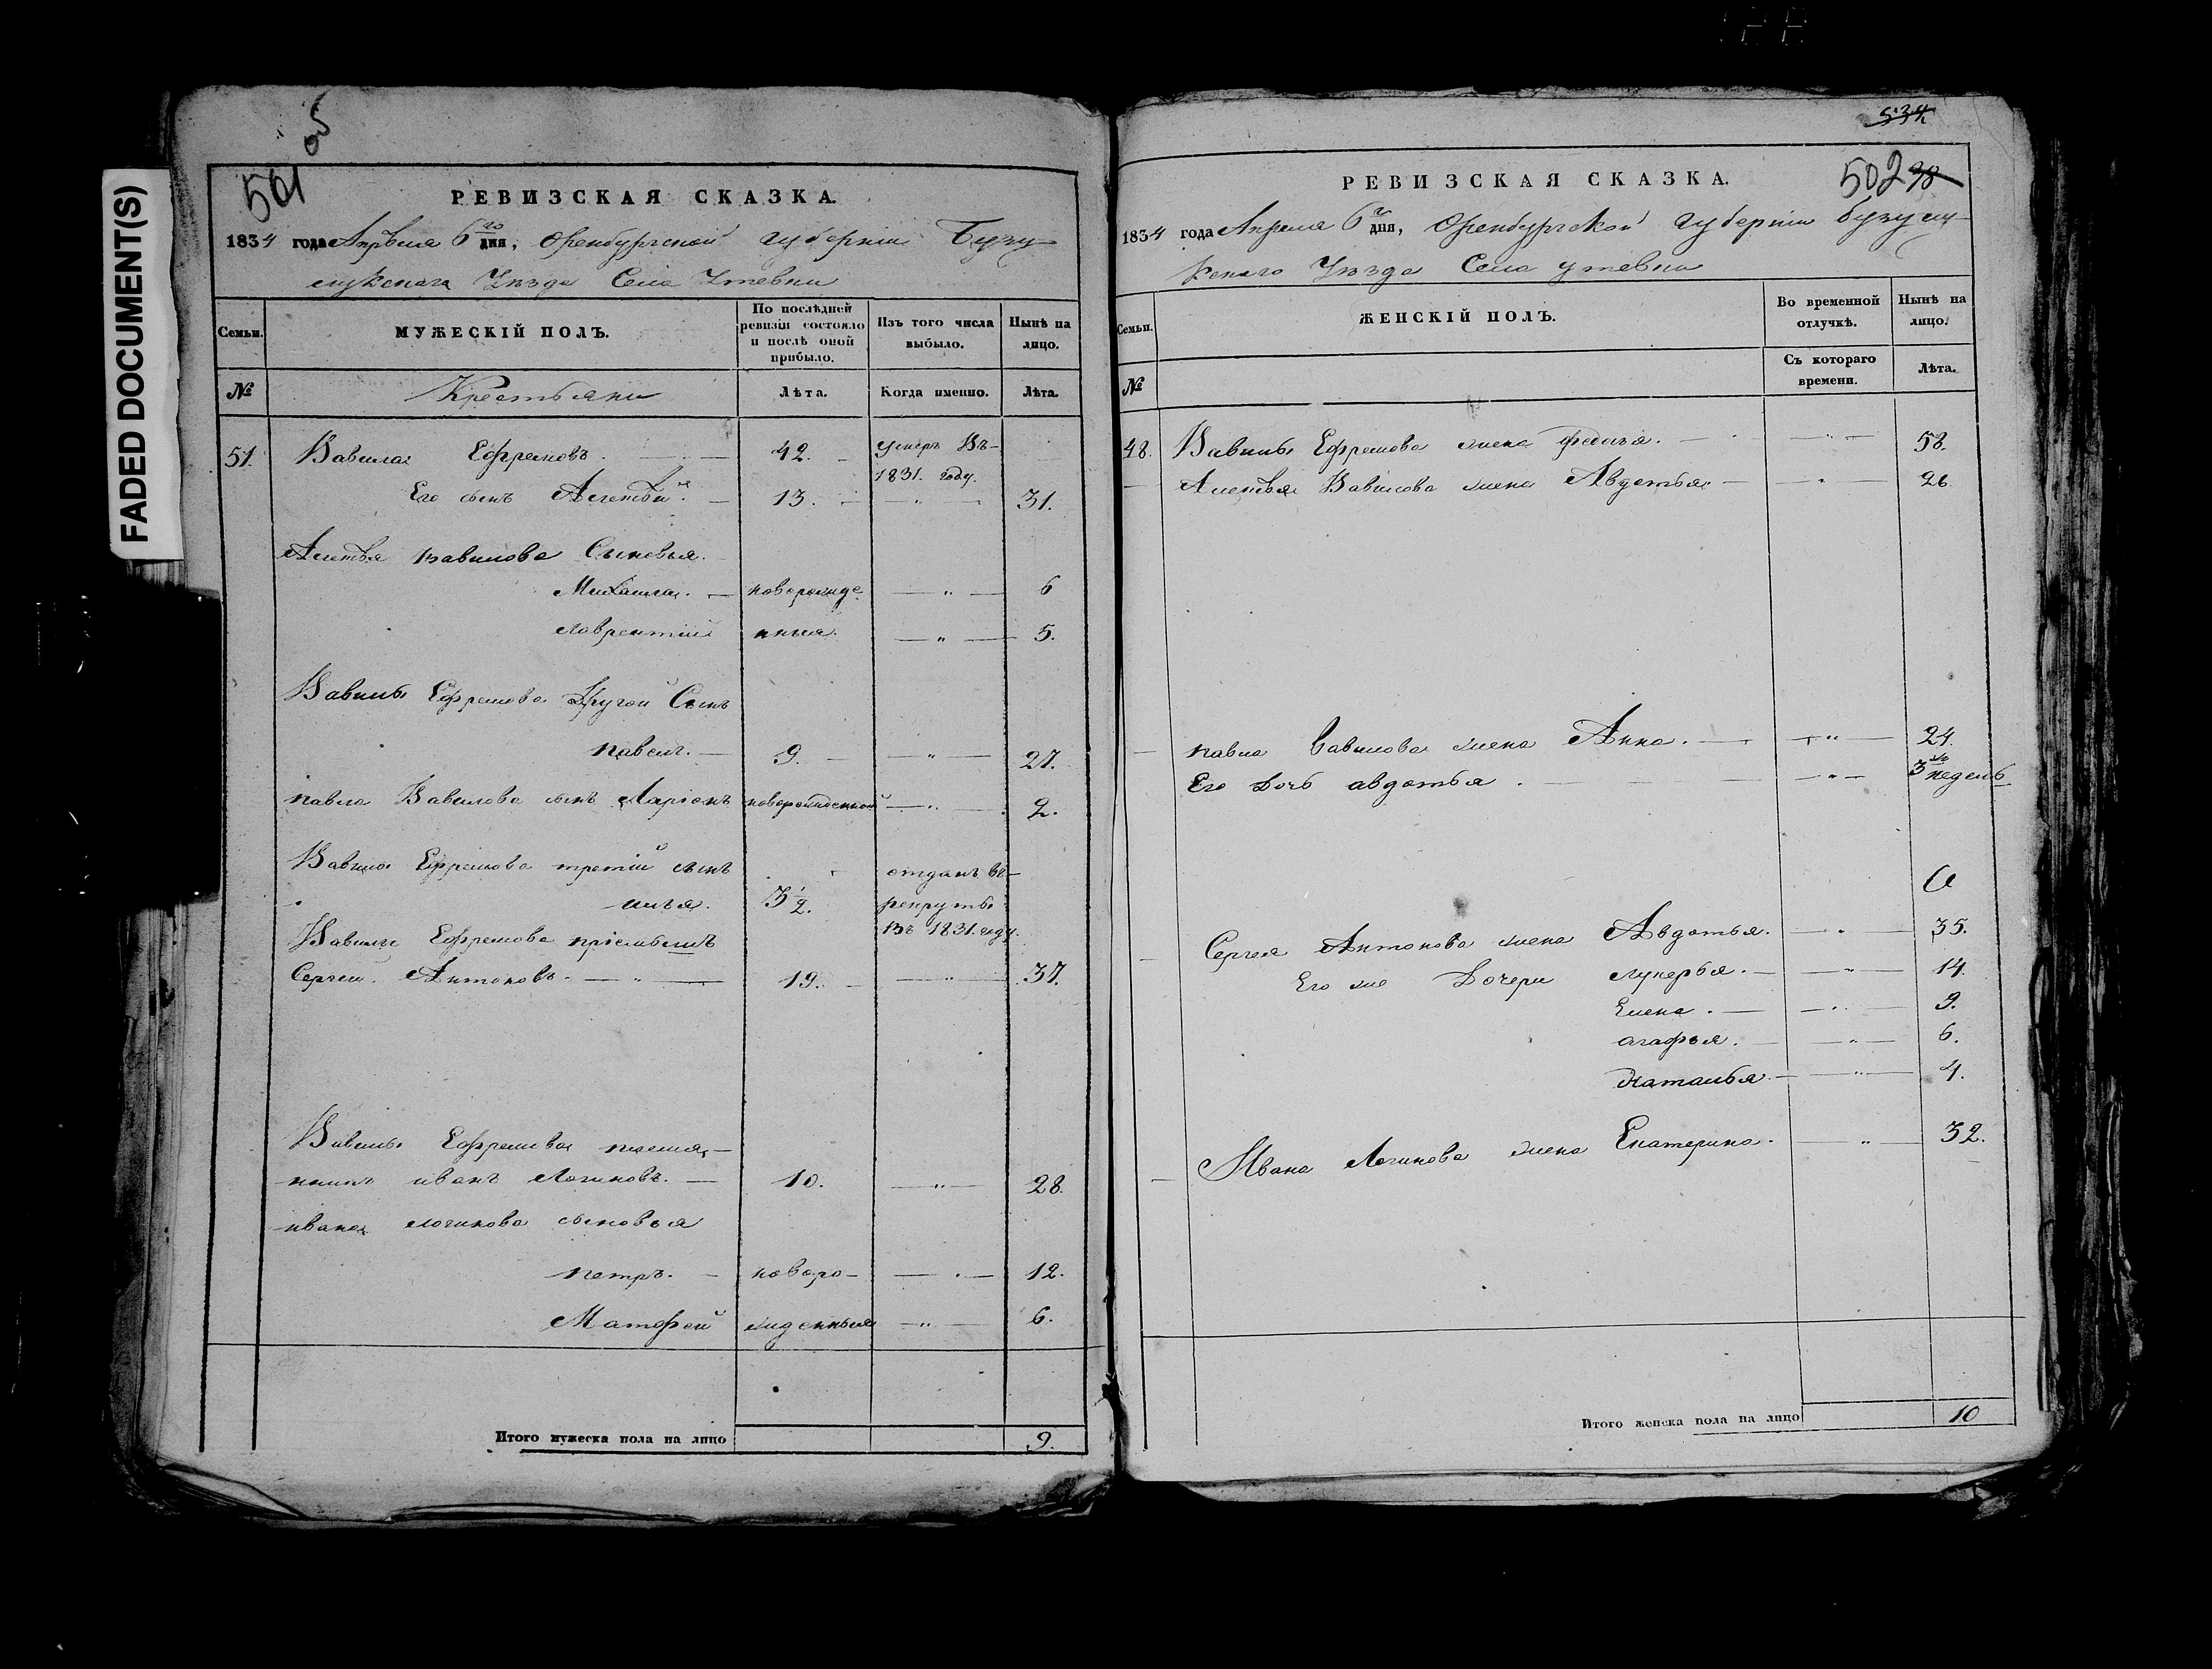 FADED DOCUMENT(S)
об
501
РЕВИЗСКАЯ СКАЗКА.
1834 года Апреля 6го дня, Оренбургской губернiи Бузу
лукскага Уѣзда Села Утевки
Семьи.
МУЖЕСКIЙ ПОЛЪ.
По послѣдней ревизiи состояло и послѣ оной прибыло.
Изъ того числа выбыло.
Нынѣ на лицо.
№
Крестьяни
Лѣта.
Когда именно.
Лѣта.
51. Вавила Ефремовъ. 42. Умеръ Въ
1831. году.
Его сынъ Алетвѣй. 13. 31.
Вавилова Сыновья.
Михаила. новорожде 6
Лаврентiй нныя. 5.
Вавилы Ефремова Другой Сынъ
павелъ. 9. 27.
павла Вавилова сынъ Ларiонъ новорожденной 2.
Вавилы Ефремова третiй сынъ отданъ въ
илья. 3 1/2. рекруты
Въ 1831. году.
Вавилы Ефремова прiемышъ
Сергей Антоновъ. 19. 37.
Вавилы Ефремова племя
нникъ иванъ Логиновъ. 10. 28.
ивана логинова сыновья
петръ. новоро 12.
Матфей жденныя 6.
Итого мужеска пола на лицо 9.
534
502 98
РЕВИЗСКАЯ СКАЗКА.
1834 года Апреля 6го дня, Оренбургской губернiи бузулу
кскаго Уѣзда Села утевки
Семьи.
ЖЕНСКIЙ ПОЛЪ.
Во временной отлучкѣ.
Нынѣ на лицо.
№
Съ котораго времени.
Лѣта.
48. Вавилы Ефремова жена федосья. 58.
Вавилова жена Авдотья 26.
павла Вавилова жена Анна. 24.
Его Дочь авдотья. 3 недель
Сергея Антонова жена Авдотья. 35.
Его же Дочери лукерья. 14.
Елена. 9.
агафья. 6.
Наталья. 4.
Ивана Логинова жена Екатерина. 32.
Итого женска пола на лицо 10